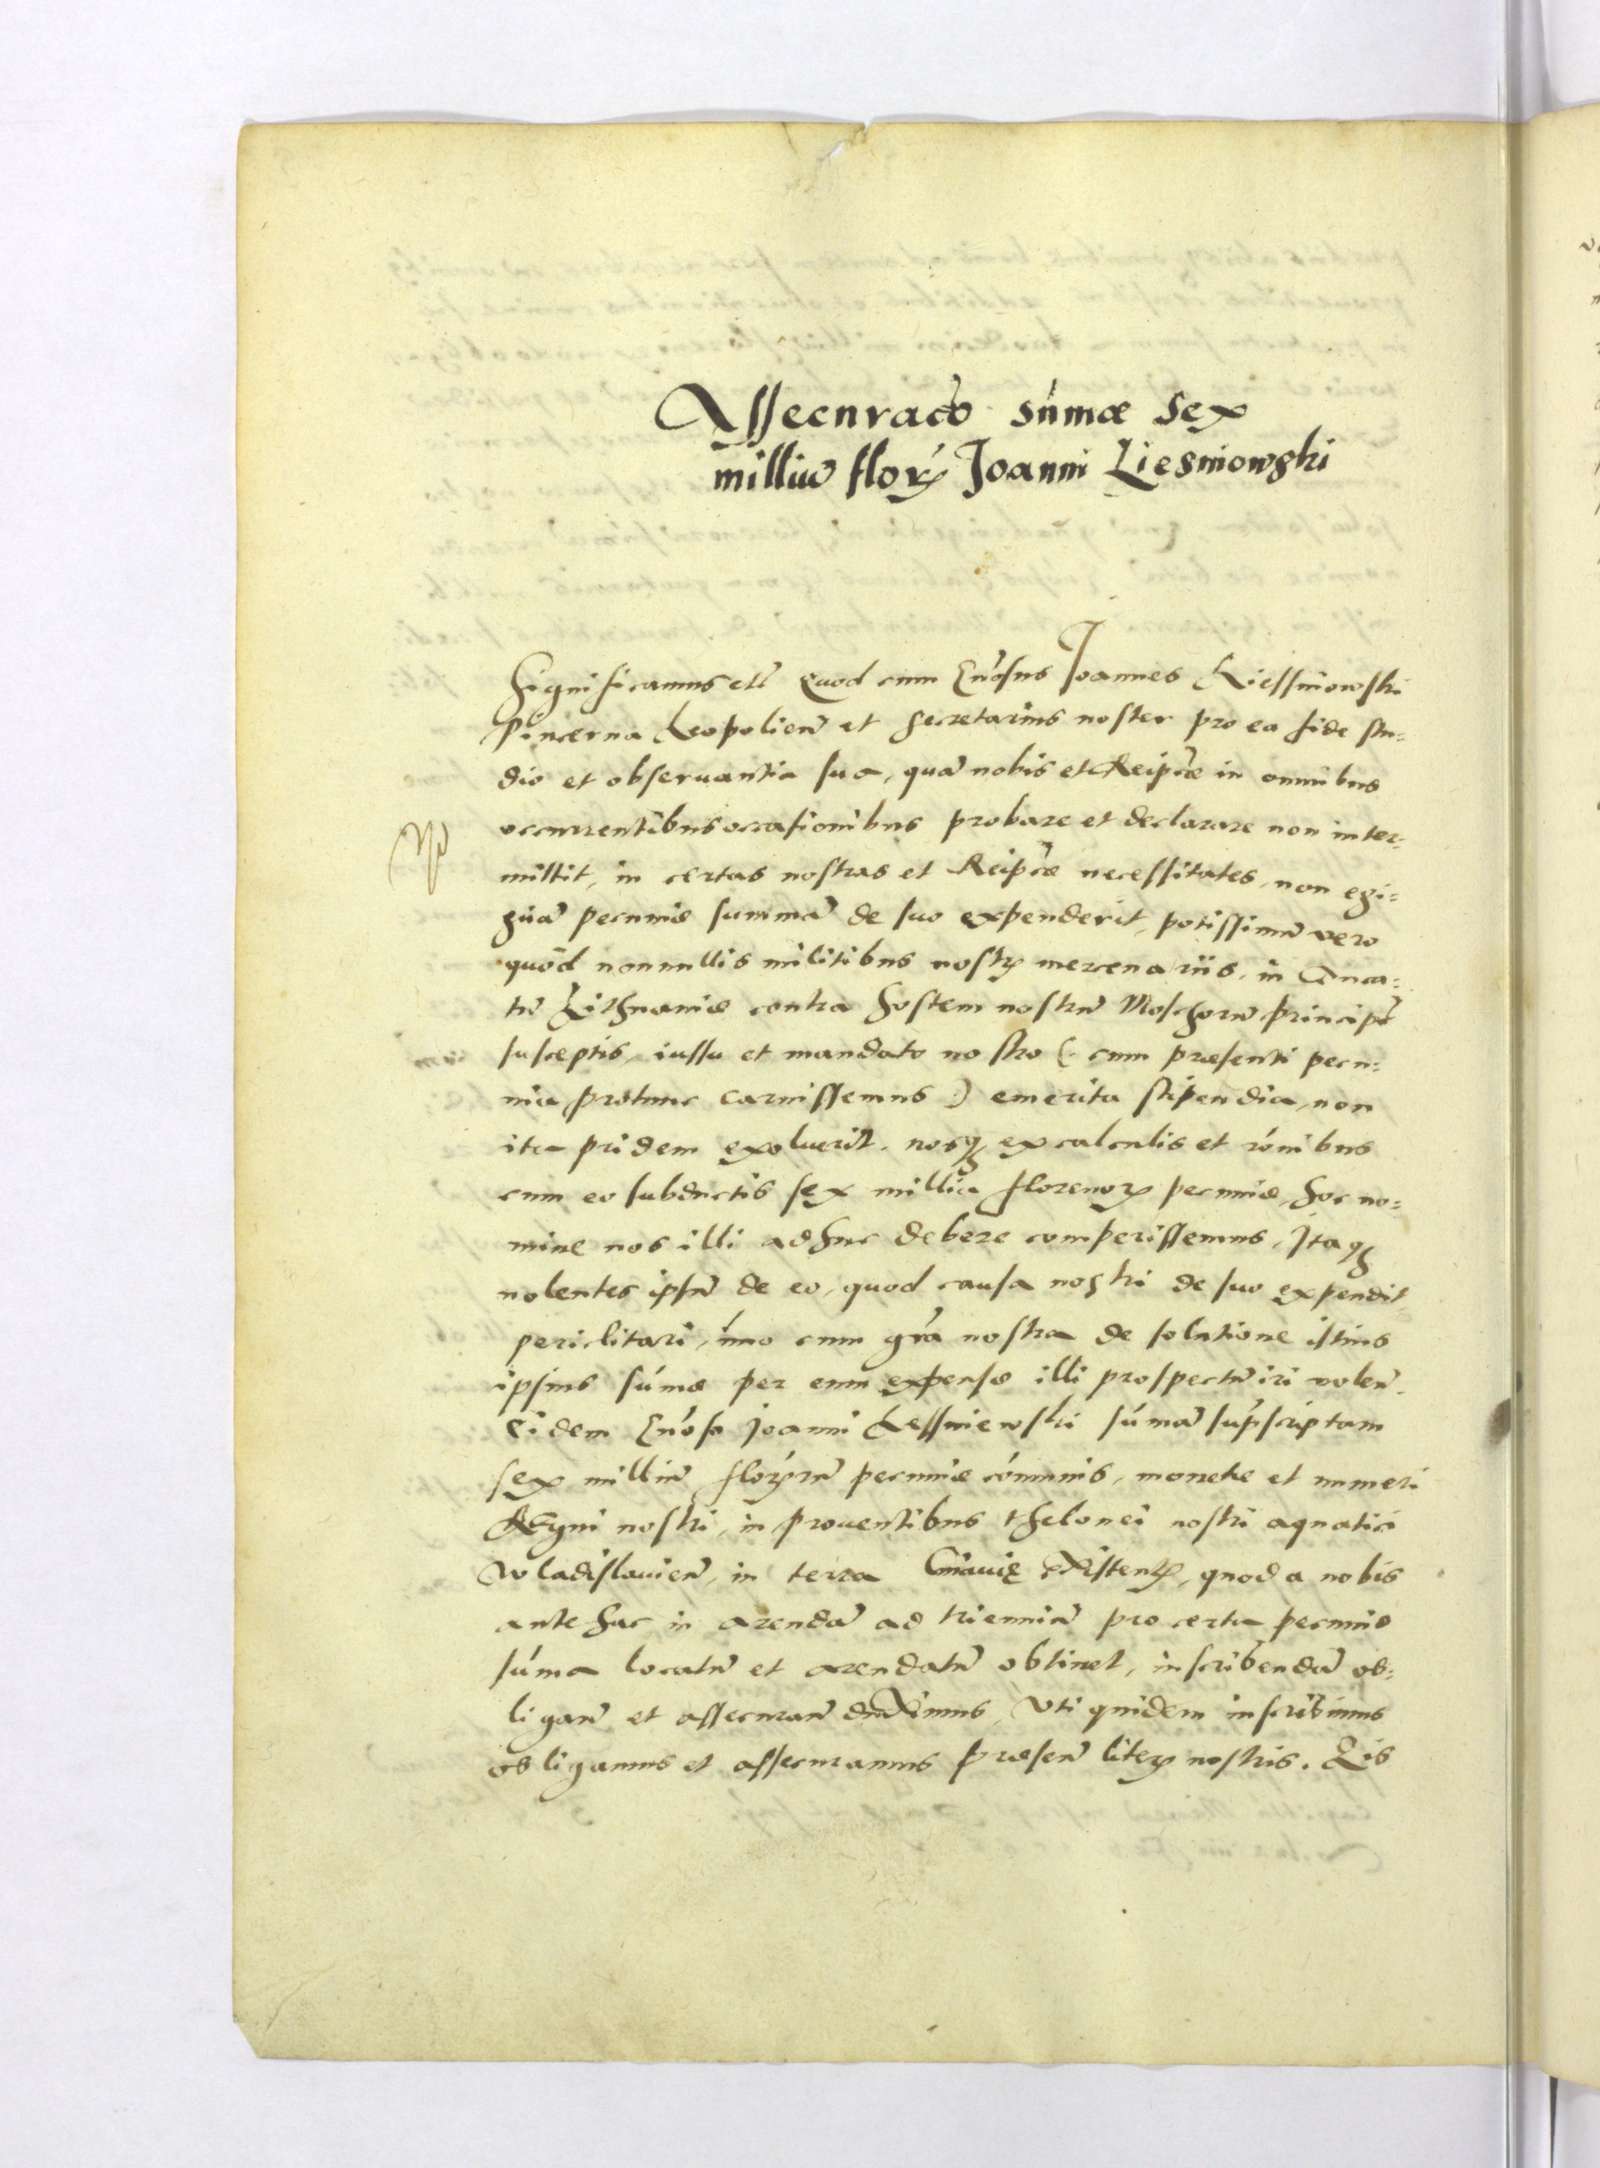 Assecuracō súmæ sex
milliū florꝝ Joanni Liesniowski
Significamus etc̃ Quod cum Gñosus Joannes Liessniowski
Pincerna Leopolieñ et Secretarius noster pro ea fide stu⸗
dio et obseruantia sua, quã nobis et Reipcæ in omnibus
occurrentibus occasionibus probare et declarare non inter⸗
mittit, in certas nostras et Reipcæ necessitates, non exi⸗
guã pecuniæ summã de suo expenderit, potissimũ vero
quòd nonnullis militibus nostrꝭ mercenariis, in Duca⸗
tũ Lithuaniæ contra hostem nostrũ Moschorũ Principẽ
susceptis, iussu et mandato nostro (: cum præsenti pecu⸗
nia protunc caruissemus :) emerita stipendia, non
ita pridem exoluerit. nosqꝫ ex calculis et rónibus
cum eo subductis sex millia florenorꝝ pecuniæ, hoc no⸗
mine nos illi adhuc debere comperissemus, Itaqꝫ
nolentes ipsũ de eo, quod causa nostri de suo expendit
periclitari, imo cum grã nostra de solutione istius
ipsius súmæ per eum expensæ illi prospectũ iri voleñ.
Eidem Gñoso Joanni Lessniewski súmã supscriptam
sex milliũ florꝝrũ pecuniæ cómunis, monetæ et numeri
Regni nostri, in prouentibus thelonei nostri aquatici
Wladislauieñ, in terra Cuiauię existenꝭ, quod a nobis
antehac in arendã ad trienniũ pro certa pecuniæ
súma locatũ et arendatũ obtinet, inscribendã ob⸗
ligañ et assecurañ duximus, Vti quidem inscribimus
obligamus et assecuramus præseñ literꝭ nostris. Lis